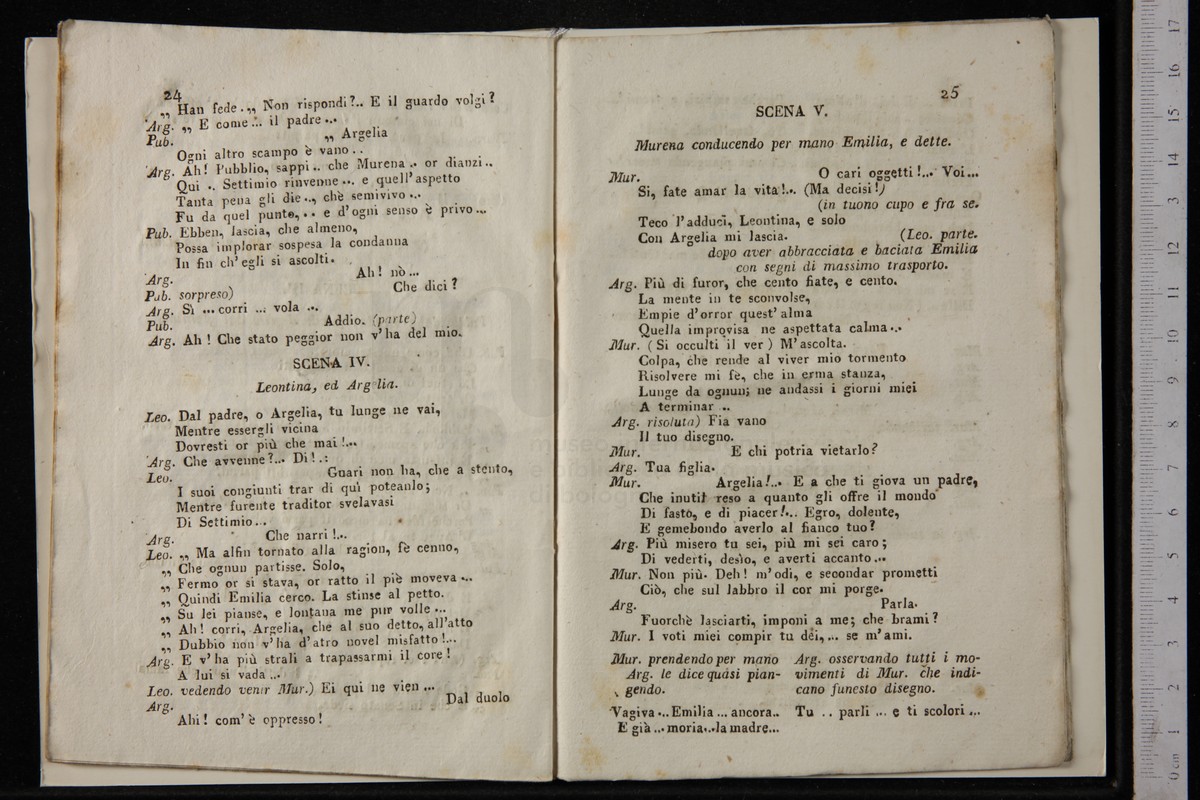 24
„ Han fede.„ Non rispondi?.. E il guardo volgi?
Arg. „ E come... il padre...
Pub. „ Argelia
Ogni altro scampo è vano..
Arg. Ah! Pubblio, sappi.. che Murena.. or dianzi..
Qui .. Settimio rinvenne... e quell'aspetto
Tanta pena gli die.., chè semivivo...
Fu da quel punto,.. e d'ogni senso è privo...
Pub. Ebben, lascia, che almeno,
Possa implorar sospesa la condanna
In fin ch'egli si ascolti.
Arg. Ah! nò...
Pub. sorpreso) Che dici?
Arg. Sì ... corri ... vola ...
Pub. Addio. (parte)
Arg. Ah! Che stato peggior non v'ha del mio.
SCENA IV.
Leontina, ed Argelia.
Leo. Dal padre, o Argelia, tu lunge ne vai,
Mentre essergli vicina
Dovresti or più che mai!...
Arg. Che avvenne?... Di!.:
Leo. Guari non ha, che a stento,
I suoi congiunti trar di quì poteanlo;
Mentre furente traditor svelavasi
Di Settimio...
Arg. Che narri!...
Leo. „ Ma alfin tornato alla ragion, fè cenno,
„ Che ognun partisse. Solo,
„ Fermo or si stava, or ratto il piè moveva...
„ Quindi Emilia cerco. La stinse al petto.
„ Su lei pianse, e lontana me pur volle...
„ Ah! corri, Argelia, che al suo detto, all'atto
„ Dubbio non v'ha d'atro novel misfatto!...
Arg. E v'ha più strali a trapassarmi il core!
A lui si vada...
Leo. vedendo venir Mur.) Ei qui ne vien ...
Arg. Dal duolo
Ahi! com'è oppresso!
25
SCENA V.
Murena conducendo per mano Emilia, e dette.
Mur. O cari oggetti!... Voi...
Si, fate amar la vita!.. (Ma decisi!)
(in tuono cupo e fra se.
Teco l'adduci, Leontina, e solo
Con Argelia mi lascia. (Leo. parte.
dopo aver abbracciata e baciata Emilia
con segni di massimo trasporto.
Arg. Più di furor, che cento fiate, e cento.
La mente in te sconvolse,
Empie d'orror quest'alma
Quella improvisa ne aspettata calma...
Mur. (Si occulti il ver) M'ascolta.
Colpa, che rende al viver mio tormento
Risolvere mi fè, che in erma stanza,
Lunge da ognun; ne andassi i giorni miei
A terminar ..
Arg. risoluta) Fia vano
Il tuo disegno.
Mur. E chi potria vietarlo?
Arg. Tua figlia.
Mur. Argelia!... E a che ti giova un padre,
Che inutil reso a quanto gli offre il mondo
Di fasto, e di piacer!... Egro, dolente,
E gemebondo averlo al fianco tuo?
Arg. Più misero tu sei, più mi sei caro;
Di vederti, desìo, e averti accanto...
Mur. Non più. Deh! m'odi, e secondar prometti
Ciò, che sul labbro il cor mi porge.
Arg. Parla.
Fuorchè lasciarti, imponi a me; che brami?
Mur. I voti miei compir tu dèi,... se m'ami.
Mur. prendendo per mano
Arg. le dice quasi pian-
gendo.
Vagiva...Emilia...ancora..
E già...moria...la madre...
Arg. osservando tutti i mo-
vimenti di Mur. che indi-
cano funesto disegno.
Tu .. parli ... e ti scolori...